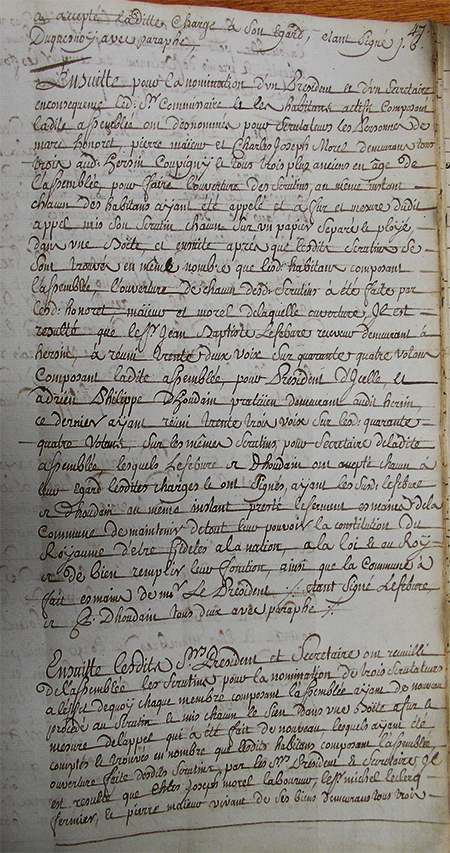 47.
a accepté laditte Charge à son Egard, etant signé J. B.
Duquesnoy avec paraphe,
Ensuitte pour la nomination d'un President et d'un Secretaire
enconsequence led. Sr. Communaire et les habitans actifs Composant
ladite assemblée ont denommés pour Scrutateurs les Personnes de
marc honoret, pierre maïeur et Charles Joseph Morel demeurans tous
trois aud. hersin Coupigny et tous trois plus anciens en âge de
l'assemblée, pour faire l'ouverture des Scrutins, au même instant
chacun des habitans ayant été appelé et a fur et mesure dudit
appel mis son Scrutin chacun sur un papier séparé et ployé
dans une Boëte, et ensuite après que lesdits Scrutins se
sont trouvés en même nombre que lesd. habitans composant
l'assemblée, l'ouverture de chacun desd. Scrutins à été faite par
lesd. honoret, maïeur et morel delaquelle ouverture, Il est
resulté que le Sr. Jean Baptiste Lefebure receveur demeurant à
hersin, à réuni trente deux voix sur quarante quatre votans
Composant ladite assemblée, pour President d'Icelle, et
adrien Philippe Dhoudain praticien demeurant audit hersin,
ce dernier ayant réuni trente trois voix sur lesd. quarante
quatre Votans, sur les mêmes Scrutins, pour Secretaire deladite
assemblée, lesquels Lefebure et Dhoudain ont accepté chacun à
leur egard lesdites charges et ont signés, ayant les Susd. lefebure
et Dhoudain au même instant preté le serment es mains dela
Commune de maintenir detout leur pouvoir la constitution du
Royaume d'etre fideles a la nation, a la loi et au Roy
et de bien remplir leur fonction, ainsi que la Commune à
fait es mains de mr. Le President /. etant signé Lefebure,
et P. Dhoudain tous deux avec paraphe /.
Ensuitte lesdits Srs. President et Secretaire ont recueilli
de l'assemblée les Scrutins pour la nomination de trois Scrutateurs
a l'effet dequoy chaque membre composant l'assemblée ayant de nouveau
procédé au Scrutin et mis chacun le sien dans une Boëte a fur et
mesure de l'appel qui a été fait de nouveau lesquels ayant été
comptés et trouvés en nombre que lesdits habitans composant l'assemblée,
ouverture faite desdits Scrutins, par les Srs. President & Secretaire, Il
est resulté que Charles Joseph morel laboureur, le Sr. michel leclercq
fermier, et pierre maïeur vivant de ses biens demeurans tous trois